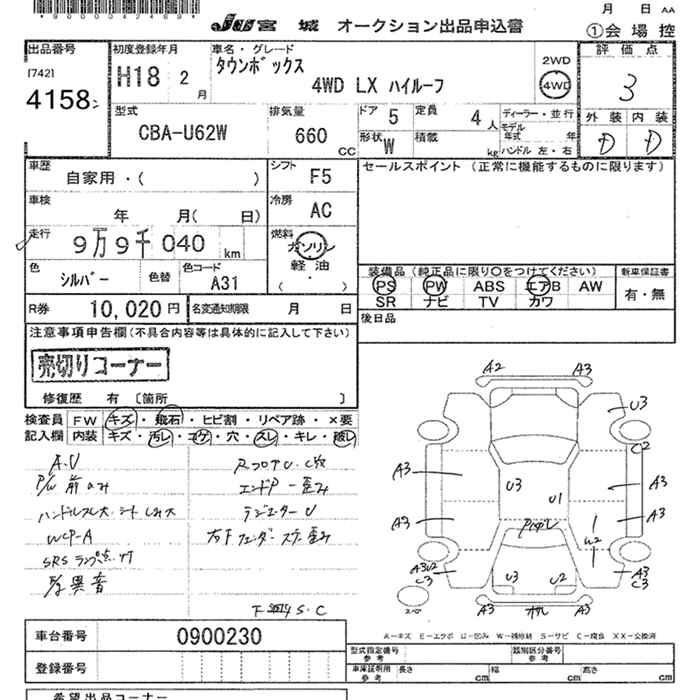 00000424694
月 日 AA
JU宮城 オークション出品申込書 ①会場控
出品番号 初度登録年月 車名・グレード 評価点
[742] H18 2 月 タウンボックス 2WD 3
4158 4WD LX ハイルーフ 4WD
型式 排気量 ドア 5 定員 4人 ディーラー・並行 外装 内装
CBA-U62W 660 CC 形状 W 積載 kg モデル年式 年 D D
ハンドル 左・右
車歴 シフト F5 セールスポイント (正常に機能するものに限ります)
自家用・( )
車検 年 月( 日) 冷房 AC
走行 9万9千040 km 燃料 ガソリン
軽油
( )
色 シルバー 色替 色コード A31
装備品(純正品に限り○をつけてください) 新車保証書
PS PW ABS エアB AW 有・無
SR ナビ TV カワ
R券 10,020円 名変通知期限 月 日
後日品
注意事項申告欄(不具合内容等は具体的に記入して下さい)
売切りコーナー
修復歴 有 〔箇所 〕
検査員 FW キズ・飛石・ヒビ割・リペア跡・×要
記入欄 内装 キズ・汚レ・コゲ・穴・スレ・キレ・破レ
A.U
P/W 前のみ エンドP-歪み
ラジエターU
WCP-A
SRSランプ点
異音
S.C
A2 A3
U3
C2
A3 A3
U3 U1
A3 A3
W2
A3U2 C3 A3 C3
U3 U2
A3 A3
スペア
A-キズ E-エクボ U-凹み W-補修跡 S-サビ C-腐食 XX-交換済
車台番号 0900230
登録番号
型式指定番号 参考 類別区分番号 参考
車庫証明用 参考 長さ cm 幅 cm 高さ cm
希望出品コーナー